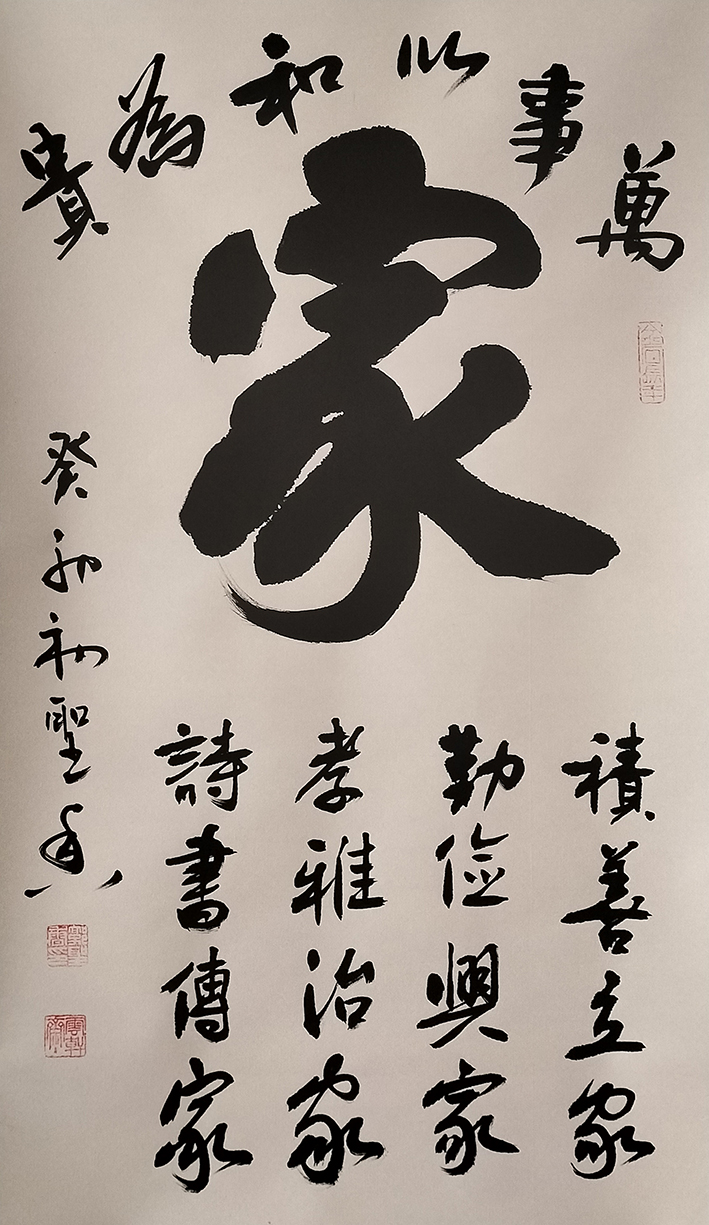 萬事以和為貴
家
積善立家
勤儉興家
孝雅治家
詩書傳家
癸卯初聖